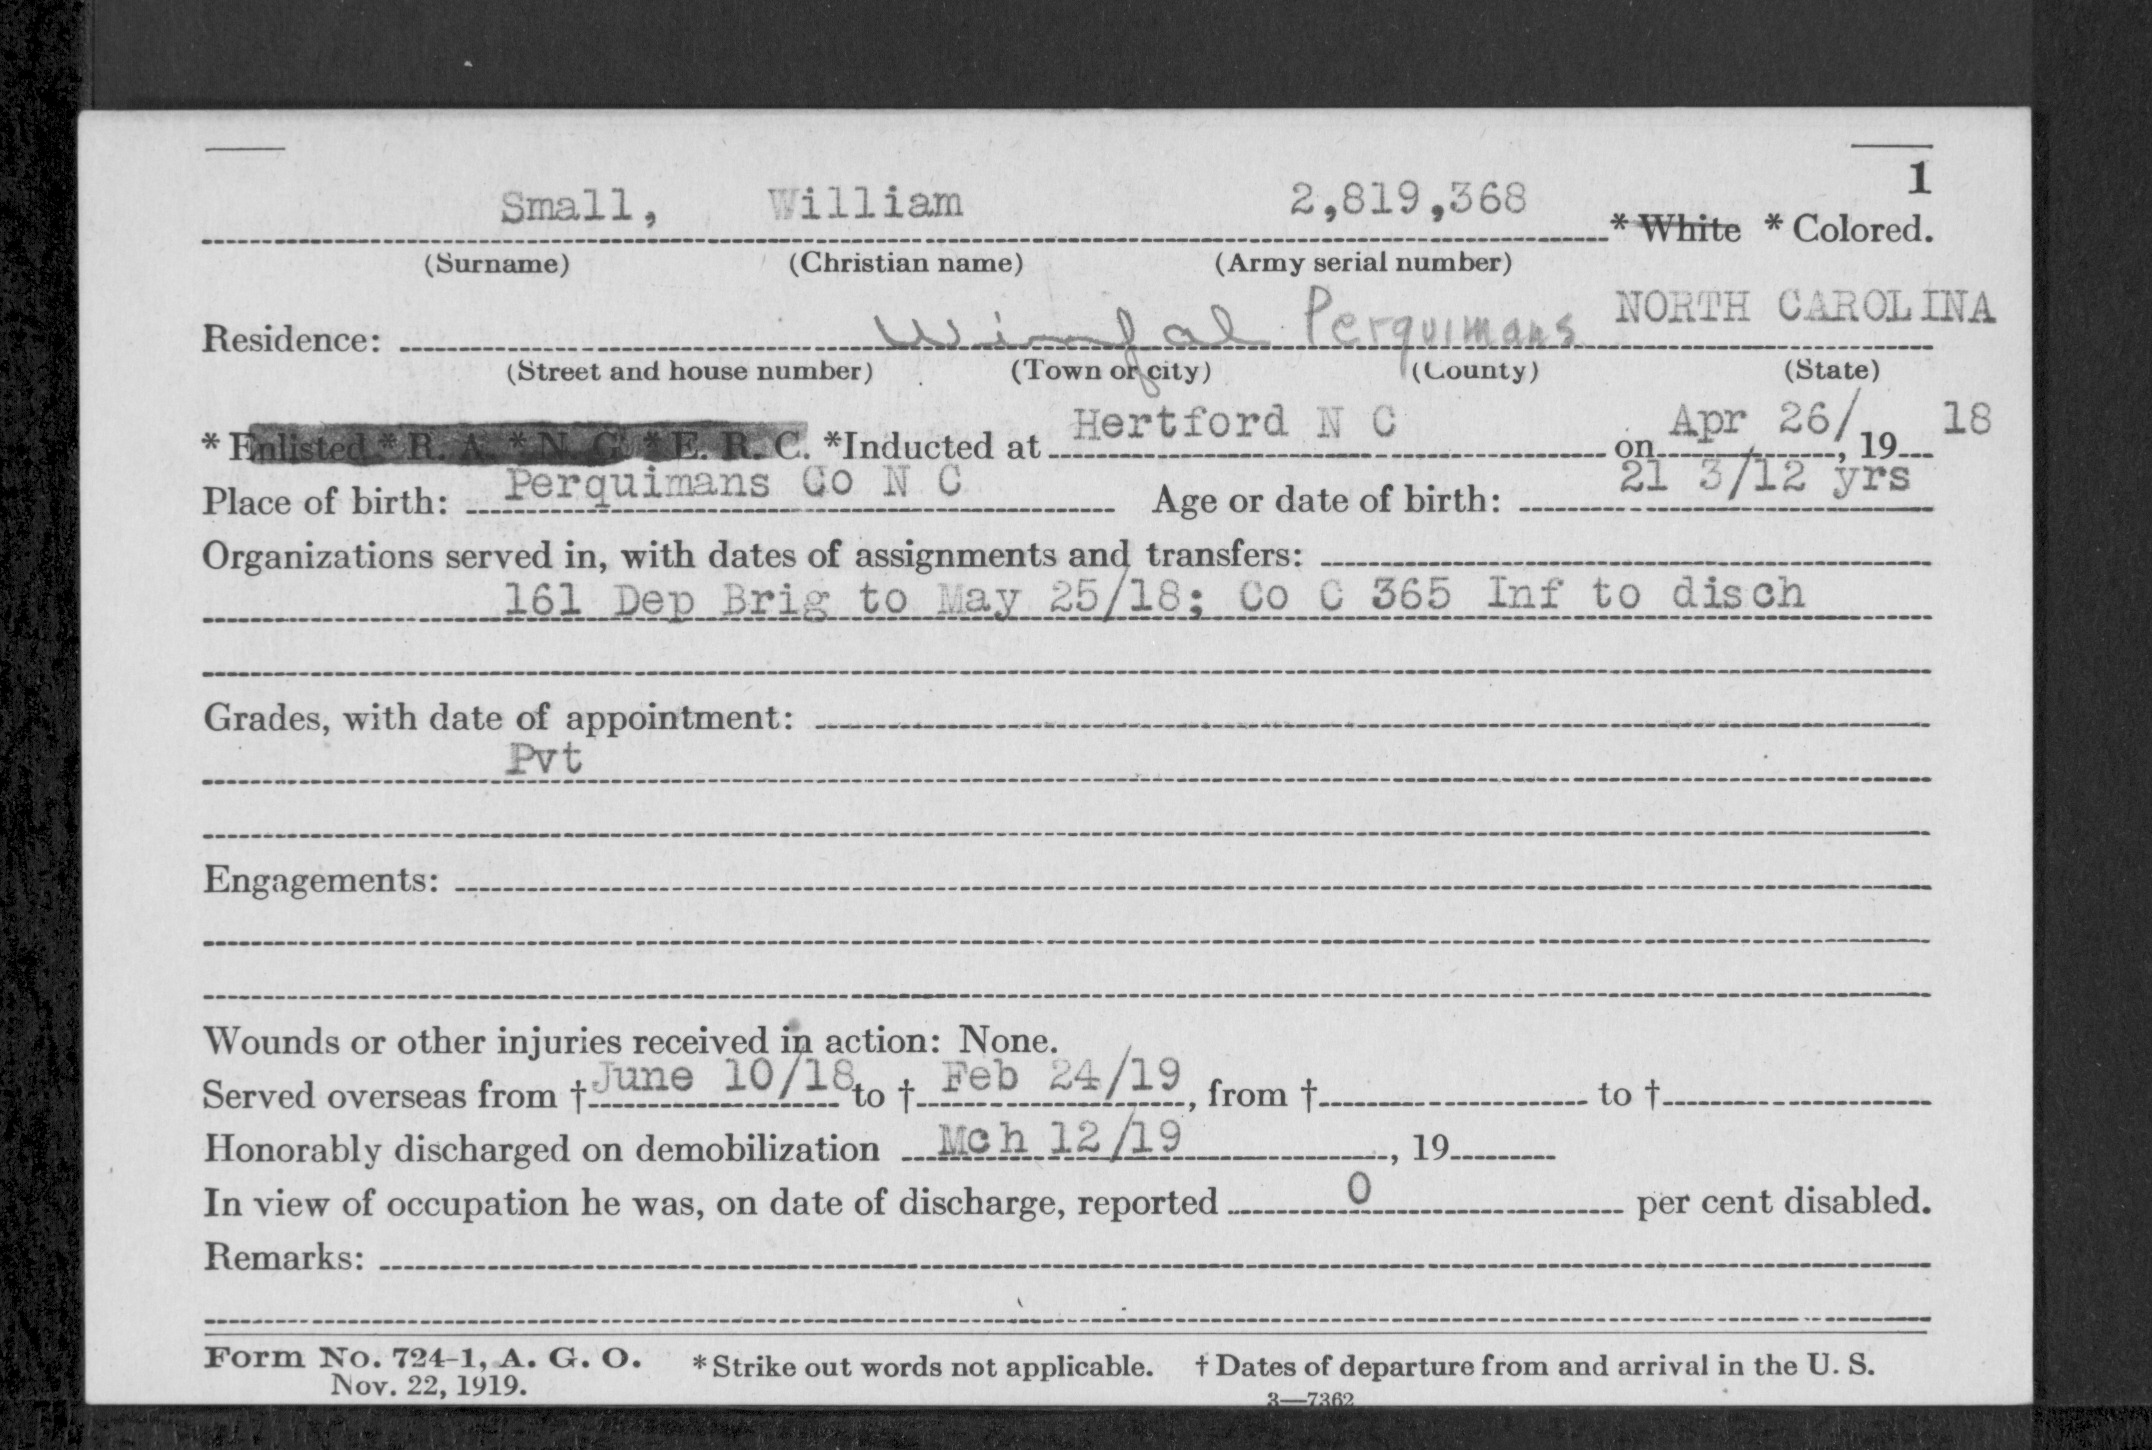 1
Small, William 2,819,368 * White * Colored.
(Surname) (Christian name) (Army serial number)
Residence: Winfal Perquimans NORTH CAROLINA
(Street and house number) (Town or city) (County) (State)
* Enlisted * R. A. * N. G. * E. R. C. *Inducted at Hertford N C on Apr 26/, 19 18
Place of birth: Perquimans Co N C Age or date of birth: 21 3/12 yrs
Organizations served in, with dates of assignments and transfers:
161 Dep Brig to May 25/18; Co C 365 Inf to disch
Grades, with date of appointment:
Pvt
Engagements:
Wounds or other injuries received in action: None.
Served overseas from † June 10/18 to † Feb 24/19, from † to †
Honorably discharged on demobilization Mch 12/19, 19
In view of occupation he was, on date of discharge, reported 0 per cent disabled.
Remarks:
Form No. 724-1, A. G. O. * Strike out words not applicable. † Dates of departure from and arrival in the U. S.
Nov. 22, 1919.
3—7362